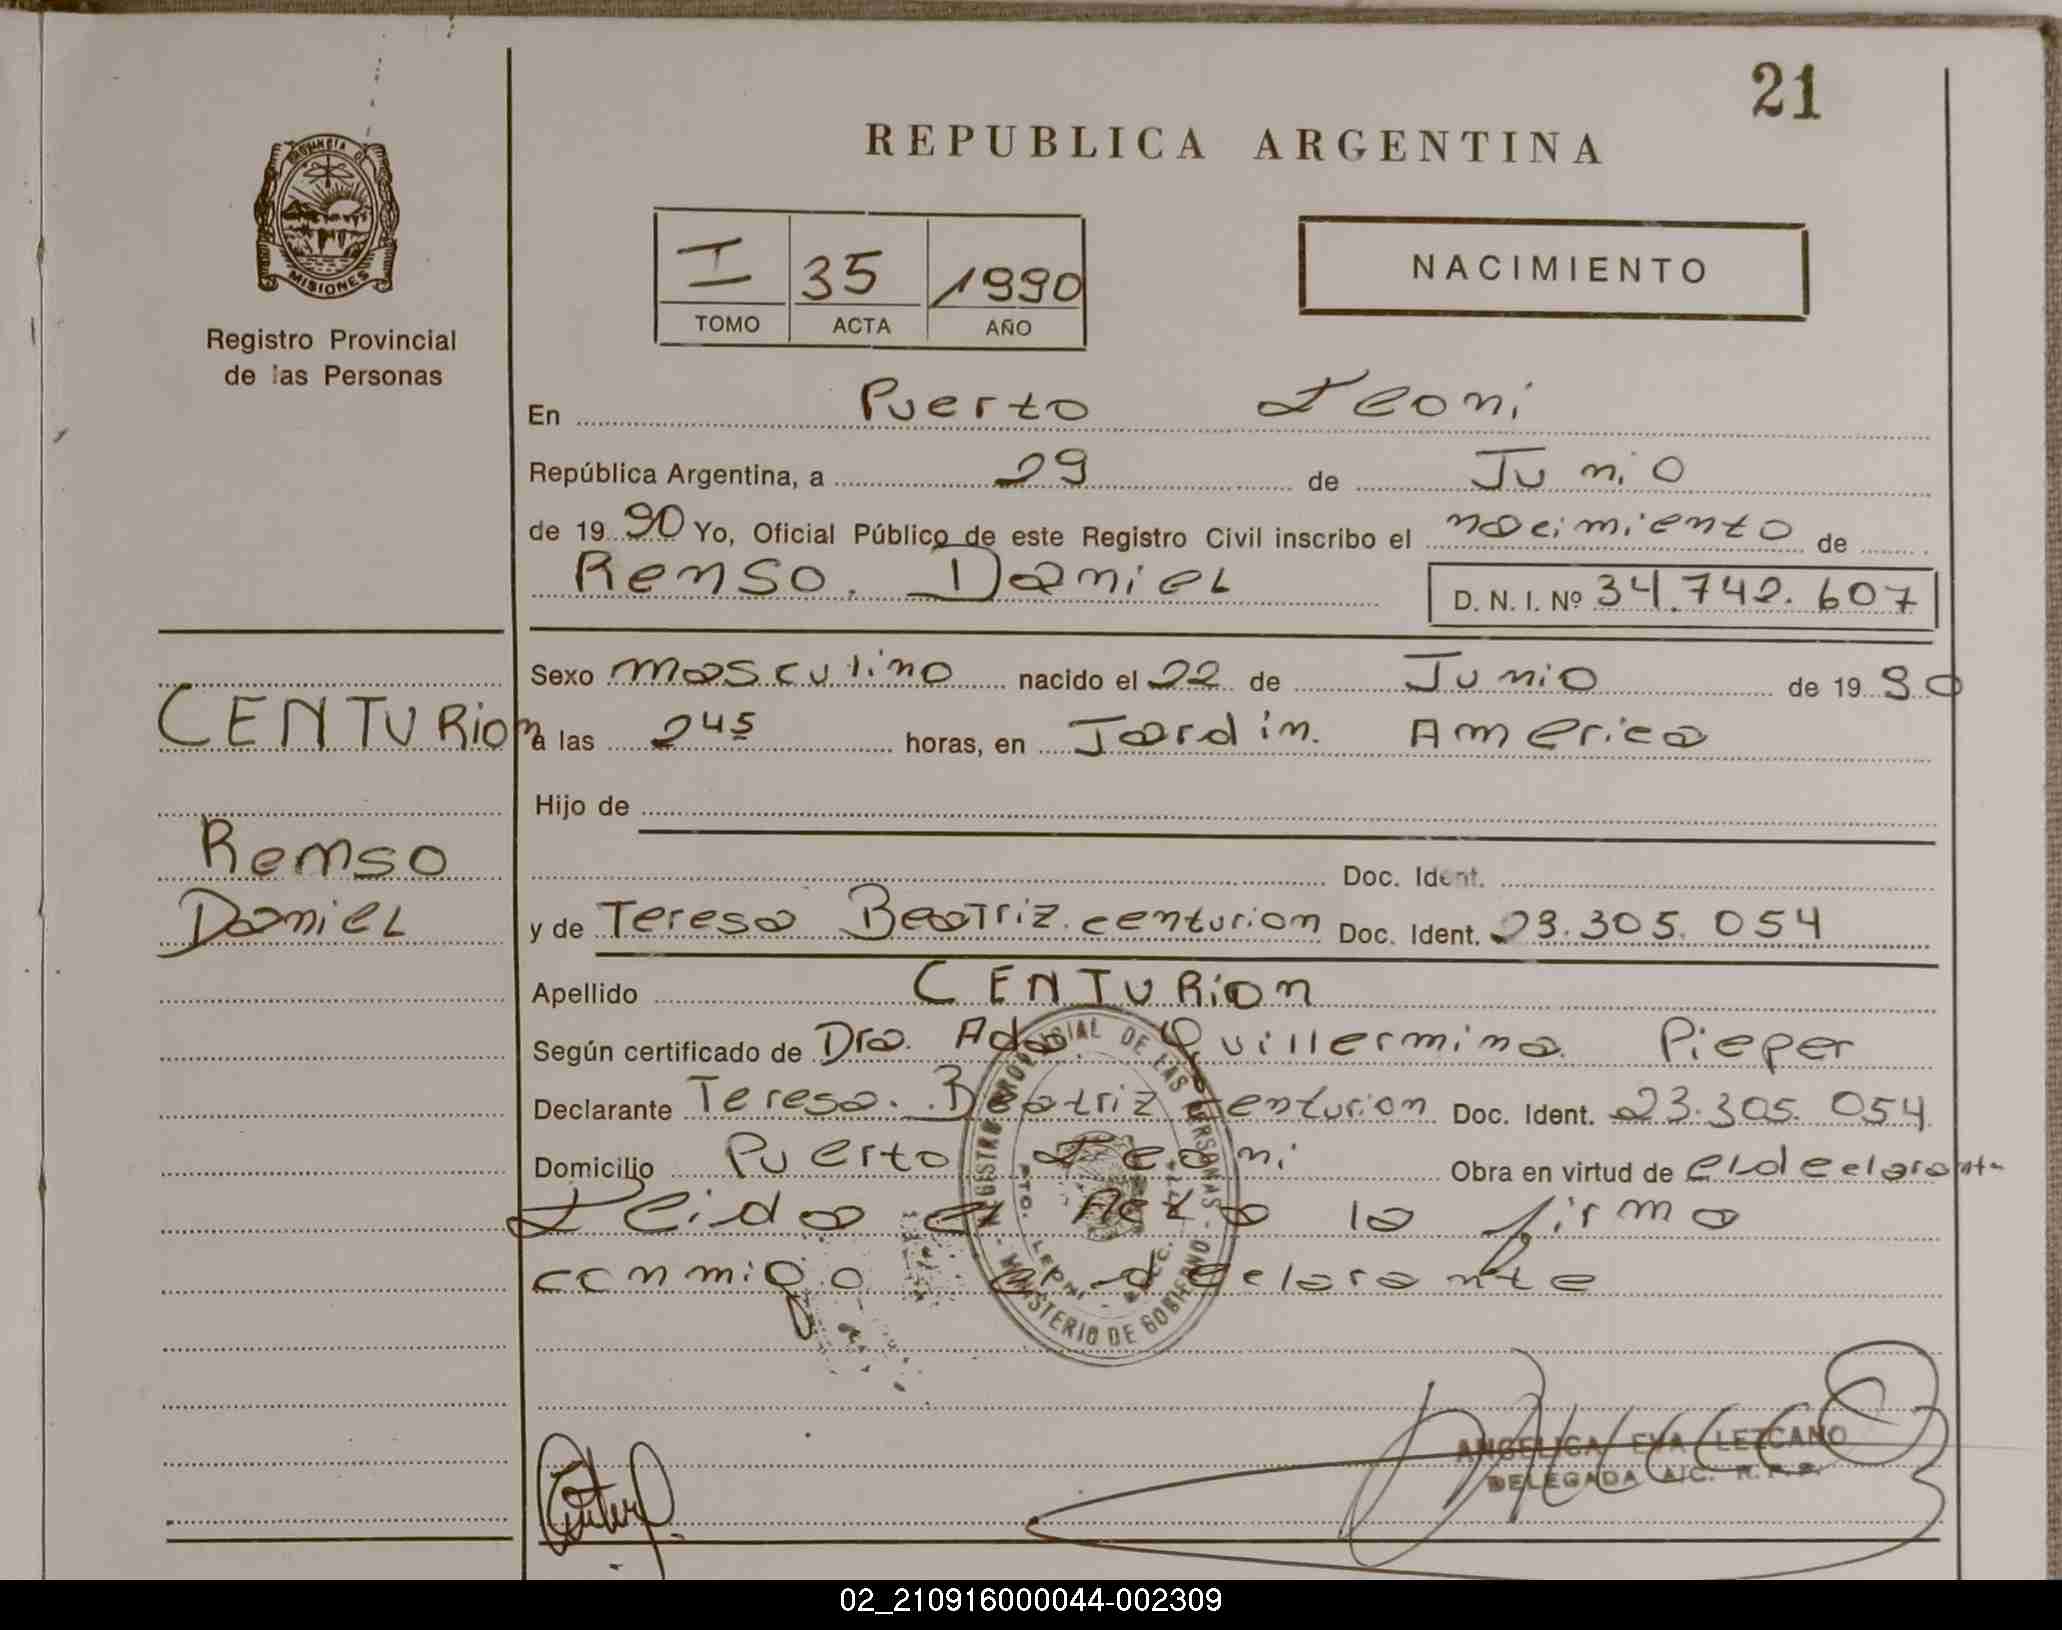 21
REPUBLICA ARGENTINA
PROVINCIA DE
MISIONES
Registro Provincial
de las Personas
I 35 1990
TOMO ACTA AÑO
NACIMIENTO
En Puerto Leoni
República Argentina, a 29 de Junio
de 1990 Yo, Oficial Público de este Registro Civil inscribo el nacimiento de
Renso Daniel D. N. I. Nº 34.742.607
CENTURion
Renso
Daniel
Sexo masculino nacido el 22 de Junio de 1990
a las 2 45 horas, en Jardin America
Hijo de
Doc. Ident.
y de Teresa Beatriz centurion Doc. Ident. 23.305.054
Apellido CENTURion
Según certificado de Dra. Ada Guillermina Pieper
Declarante Teresa Beatriz centurion Doc. Ident. 23.305.054
Domicilio Puerto Leoni Obra en virtud de el declarante
Leida el Acta la firma
conmigo el declarante
REGISTRO PROVINCIAL DE LAS PERSONAS
MINISTERIO DE GOBIERNO
PTO. LEONI
ANGELICA EVA LEZCANO
DELEGADA A/C. R. P. P.
02_210916000044-002309